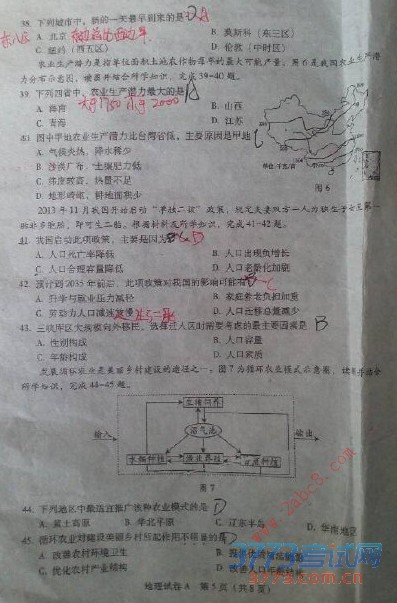 38. 下列城市中，新的一天最早到来的是 A
东八区 A. 北京 东边总比西边早 B. 莫斯科（东三区）
C. 纽约（西五区） D. 伦敦（中时区）
农业生产潜力是指单位面积土地农作物每年的最大可能产量，图6是我国农业生产潜
力分布示意图，读图并结合所学知识，完成 39~40 题。
39. 下列四省中，农业生产潜力最大的是 A
A. 海南 大于1750 小于2000 B. 山西
C. 青海 D. 江苏
40. 图中甲地农业生产潜力比台湾省低，主要原因是甲地
A. 气候炎热，降水稀少
B. 沙漠广布，土壤肥力低
C. 纬度较高，热量不足
D. 地形崎岖，耕地面积少
单位:千克/亩
图 6
2013 年 11 月我国开始启动“单独二孩”政策，规定夫妻双方一人为独生子女且第一
胎非多胞胎，即可生二胎。根据材料及所学知识，完成 41~42 题。
41. 我国启动此项政策，主要是因为 D
A. 人口死亡率降低 B. 人口出现负增长
C. 人口合理容量降低 D. 人口老龄化加剧
42. 预计到 2035 年前后，此项政策对我国的影响可能有 C
A. 升学与就业压力减轻 B. 家庭养老负担加重
C. 劳动力人口减速放慢 D. 人口迁移总量减少
43. 三峡库区大规模向外移民，选择迁入区时需要考虑的最主要因素是 B
A. 性别构成 B. 人口容量
C. 年龄构成 D. 人口素质
发展循环农业是美丽乡村建设的途径之一，图 7 为循环农业模式示意图，读图并结合
所学知识，完成 44~45 题。
畜禽饲养
输入 沼气池 输出
水稻种植 渔业养殖 甘蔗种植
图 7
44. 下列地区中最适宜推广该种农业模式的是 D
A. 黄土高原 B. 华北平原 C. 辽东半岛 D. 华南地区
45. 循环农业对建设美丽乡村所起作用不明显的是 D
A. 改善农村环境卫生
C. 优化农村产业结构 D. 改善人口年龄结构
地理试卷A 第 5 页（共 8 页）
www.2abc8.com